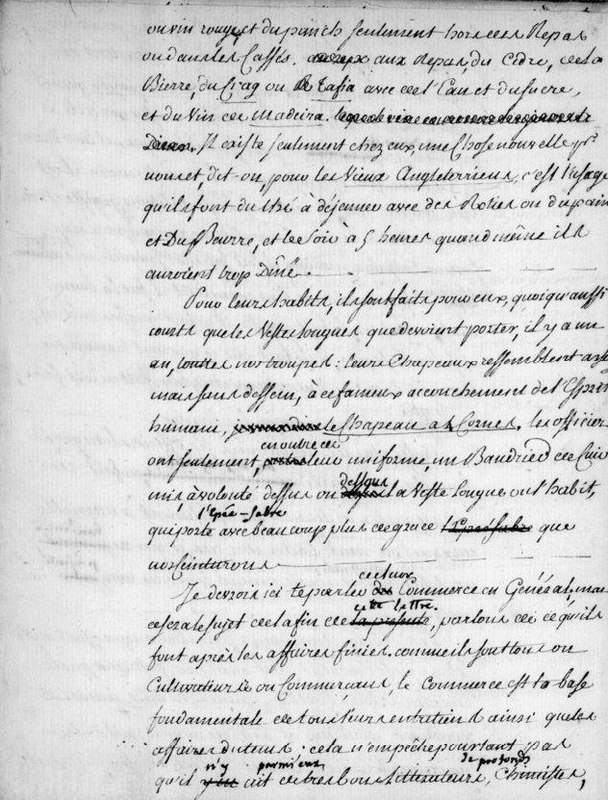 ou vin rouge, et du punch seulement hors des Repas
ou dans les Caffés. aux Repas, du Cidre, de la
Bierre, du Grag ou de Tafia avec de l'Eau et du sucre,
et du vin de Madeira.
Il existe seulement chez eux, une Chose nouvelle pr
nous et, dit-on, pour les Vieux Angleterriens, c'est l'usage
qu'ils font du thé à déjeuner avec des Roties ou du pain
et Du Beurre, et le soir à 5 heures quand même ils
auroient trop Dîné.
Pour leurs habits, ils sont faits pour eux, quoiqu'aussi
courts que les Vestes longues que devoient porter, il y a un
an, toutes nos troupes: leurs Chapeaux ressemblent assez
mais sans dessein, à ce fameux accouchement de l'Esprit
humain, le Chapeau à 2 Cornes. les officiers
ont seulement, en outre de leur uniforme, un Baudrier de Cuir
mis, à volonté dessus ou dessous la Veste longue ou l'habit,
qui porte avec beaucoup plus de grace l'Epée-sabre que
nos Ceinturons
Je devrois ici te parler de leur Commerce en Général, mais
ce sera le sujet de la fin de cette lettre, parlons de ce qu'ils
font après les affaires finies. comme ils sont tous ou
Cultivateurs ou Commerçans, le Commerce est la base
fondamentale de tous leurs entretiens ainsi que les
affaires du tems: cela n'empêche pourtant pas
qu'il n'y ait parmi eux de très bons Littérateurs, de profonds Chimistes,